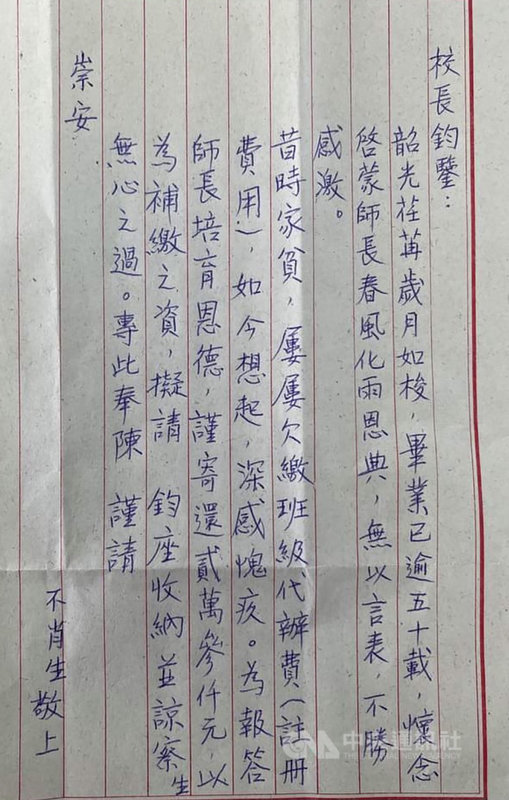 校長鈞鑒：
韶光荏苒歲月如梭，畢業已逾五十載，懷念
啓蒙師長春風化雨恩典，無以言表，不勝
感激。
昔時家貧，屢屢欠繳班級代辦費（註冊
費用），如今想起，深感愧疚。為報答
師長培育恩德，謹寄還貳萬參仟元，以
為補繳之資，擬請 鈞座收納並諒察生
無心之過。專此奉陳 謹請
崇安
不肖生敬上
中央通訊社